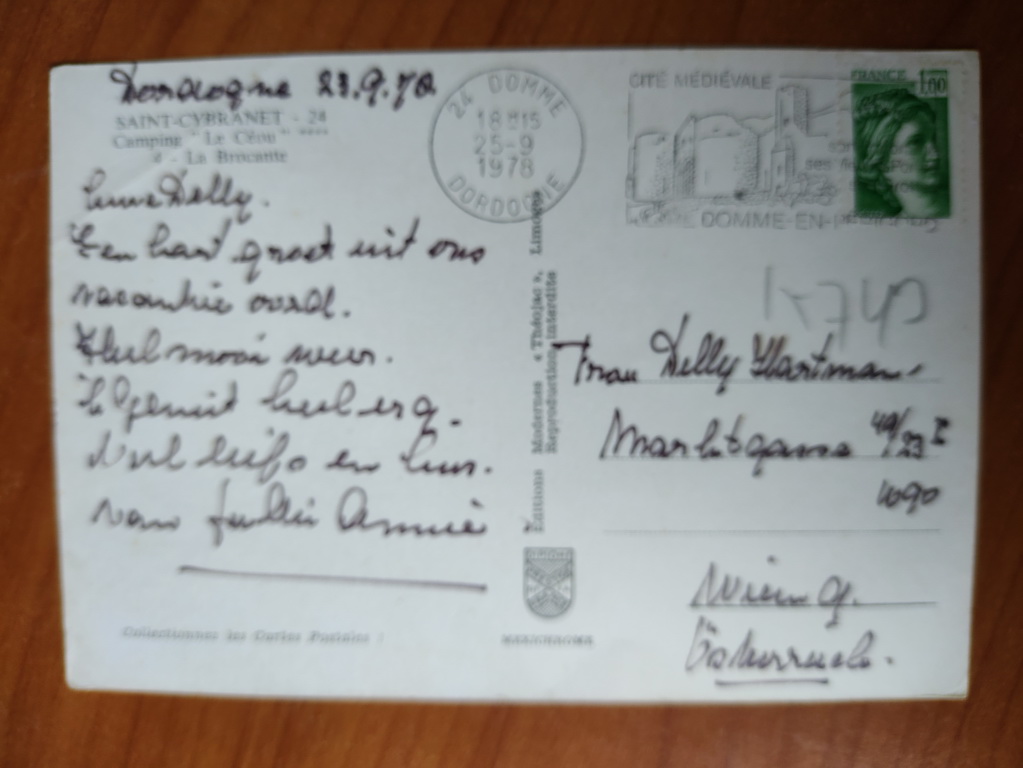 Dordogne 23.9.78
SAINT-CYBRANET - 24
Camping "Le Céou" ****
4 - La Brocante
24 DOMME
18H15
25-9
1978
DORDOGNE
CITÉ MÉDIÉVALE
DOMME-EN-
FRANCE
1,60
Nelly.
Een hart groet uit ons
vacantie oord.
Heel mooi weer.
genuit heel erg.
Veel liefs en
van Annie
Éditions Modernes « Théojac », Limoges
Reproduction interdite
Frau Nelly Hartman
49/23
1090
Wien 9.
Österreich.
Collectionnez les Cartes Postales !